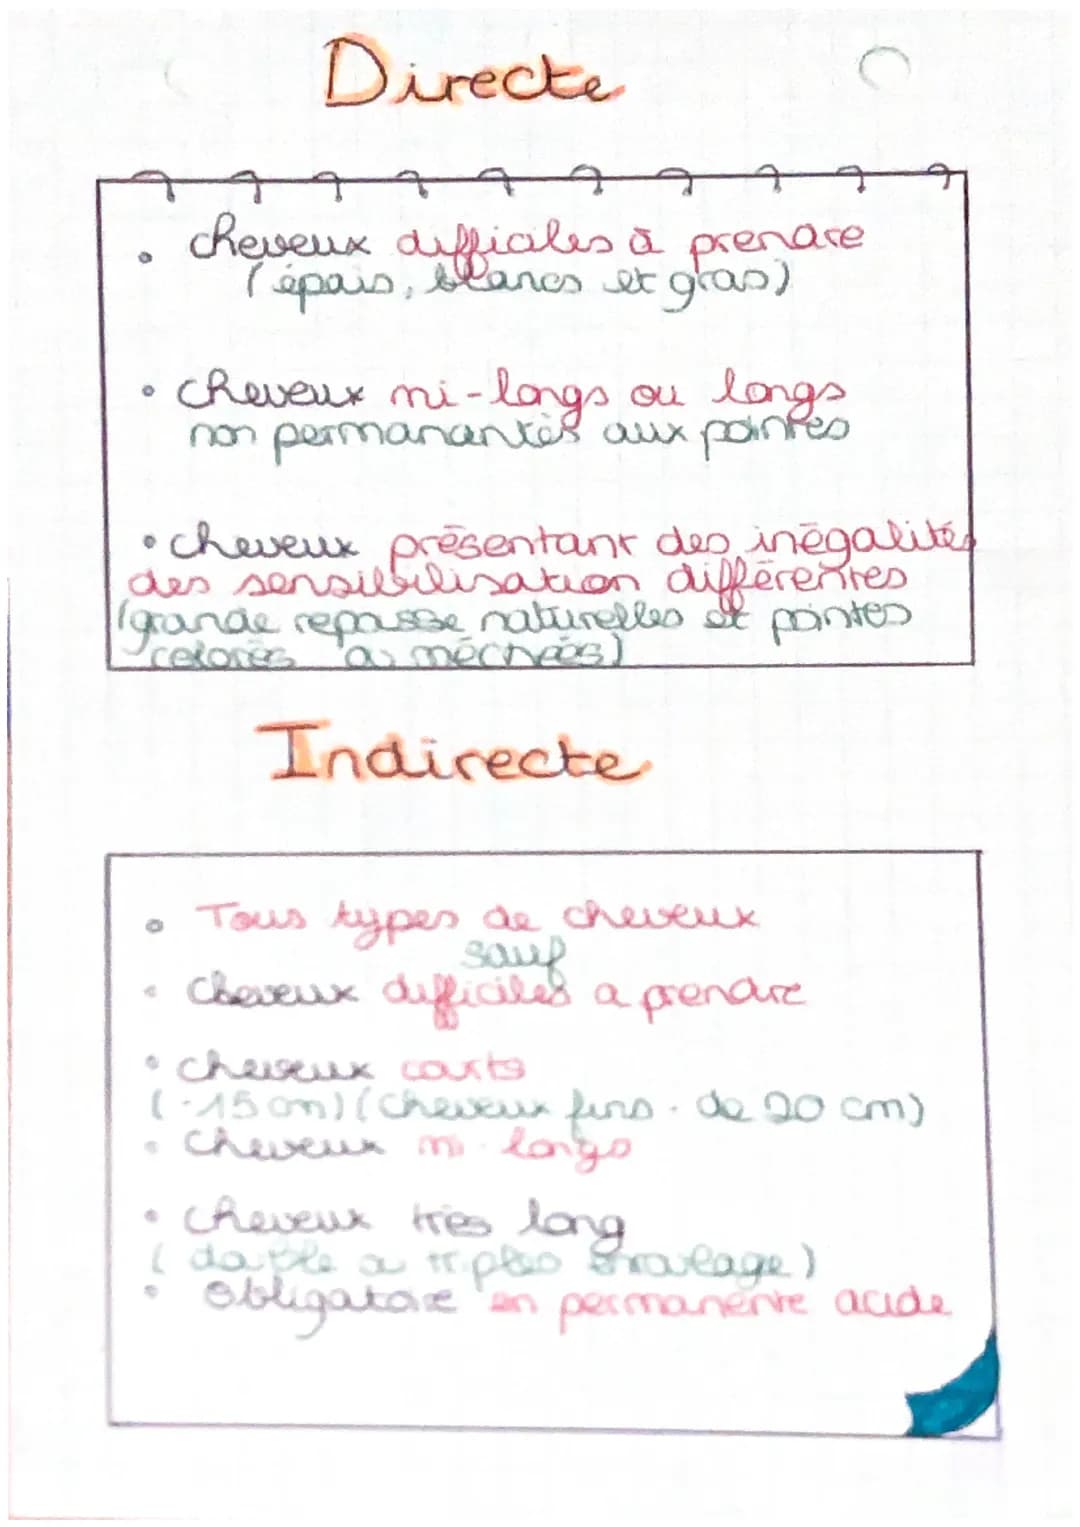 Directe
• cheveux difficiles à prendre
(épais, blancs et gras)
• cheveux mi-longs ou longs
non permanantés aux pointes
• cheveux présentant des inégalités
des sensibilisation différentes
(grande repasse naturelles et pointes
colorés ou méchées)
Indirecte
• Tous types de cheveux
sauf
• cheveux difficiles a prendre
• cheveux courts
(-15 cm) (cheveux fins - de 20 cm)
• cheveux mi-longs
• cheveux très long
(double ou triples enroulage)
• obligatoire en permanente acide